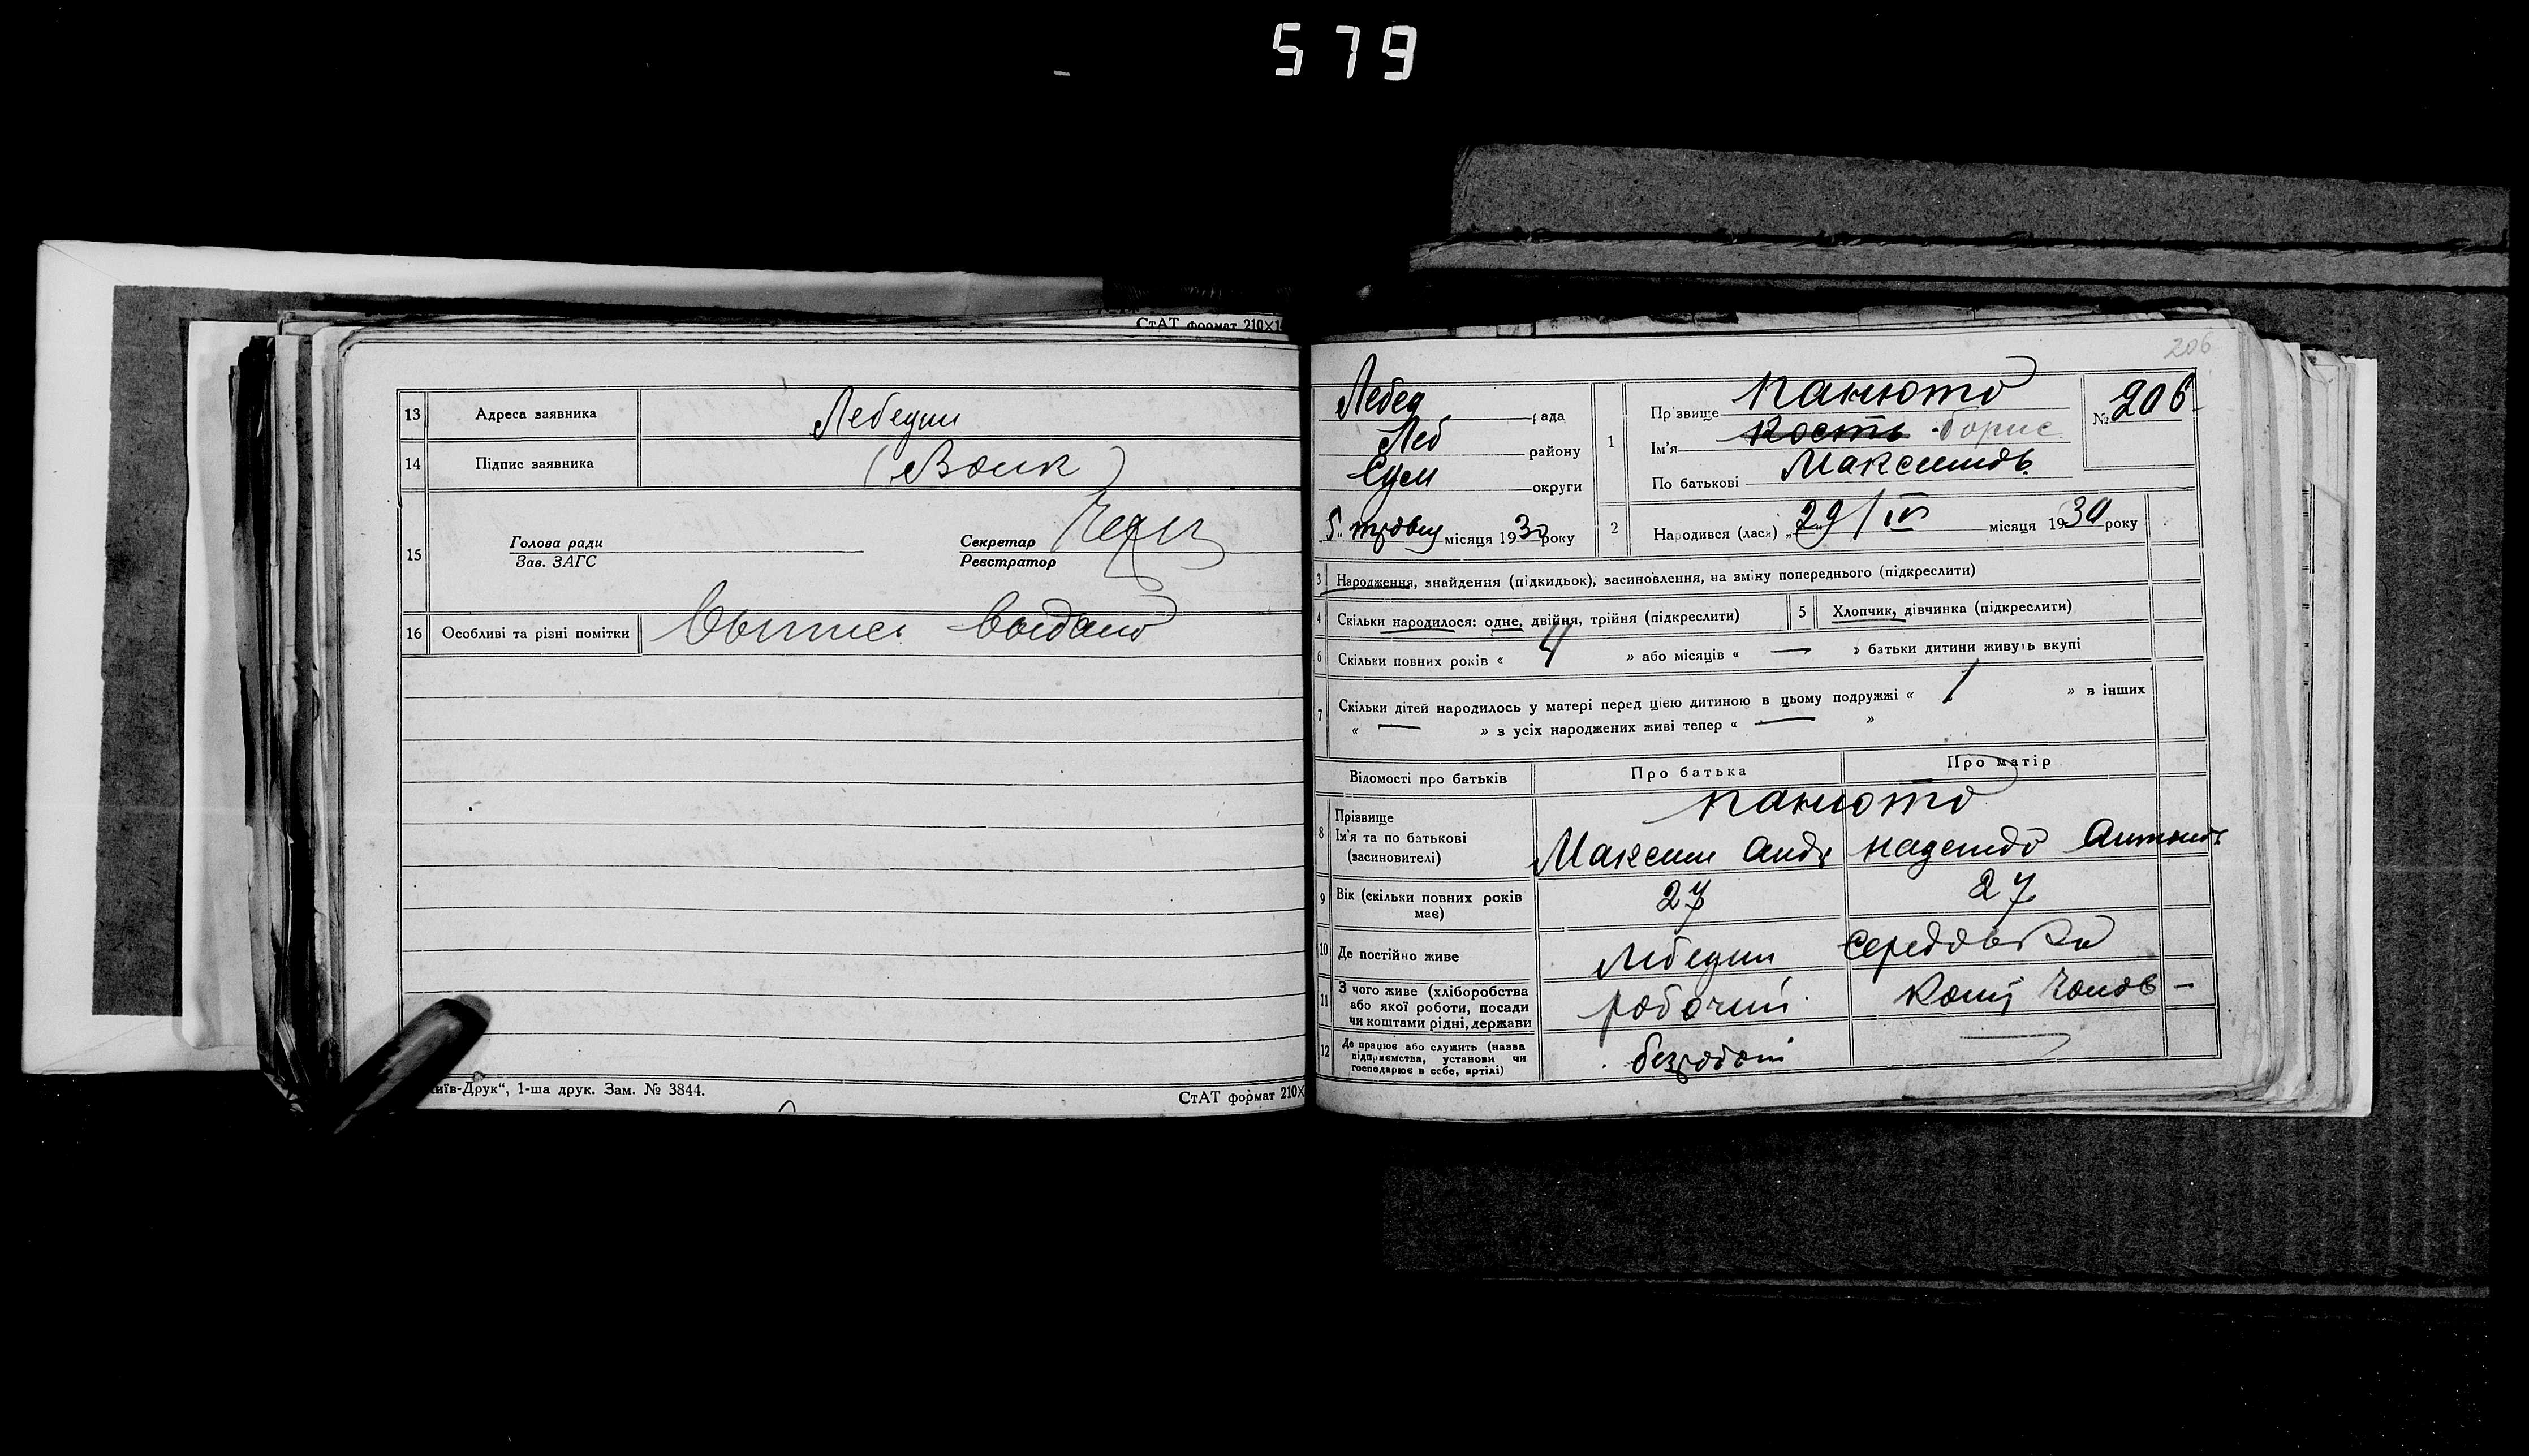 579
СтАТ формат 210X1
13 Адреса заявника Лебедин
14 Підпис заявника (Волк)
15 Голова ради Секретар
Зав. ЗАГС Реєстратор
16 Особливі та різні помітки Выпис. выдано
"Київ-Друк“, 1-ша друк. Зам. № 3844.
СтАТ формат 210X
206
Лебед рада
Леб району
Сум округи
5. травня місяця 1930 року
1 Прізвище Панюта № 206
Ім'я Кость Борис
По батькові Максимов.
2 Народився (лась) „29/IV місяця 1930 року
3 Народження, знайдення (підкидьок), засиновлення, на зміну попереднього (підкреслити)
4 Скільки народилося: одне, двійня, трійня (підкреслити) 5 Хлопчик, дівчинка (підкреслити)
6 Скільки повних років « 4 » або місяців « — » батьки дитини живуть вкупі
7 Скільки дітей народилось у матері перед цією дитиною в цьому подружжі « 1 » в інших
« — » з усіх народжених живі тепер « — »
Відомості про батьків Про батька Про матір
8 Прізвище Панюта
Ім'я та по батькові Максим Андр Надежда Антонов
(засиновителі)
9 Вік (скільки повних років має) 27 27
10 Де постійно живе Лебедин Середовка
11 З чого живе (хліборобства
або якої роботи, посади робочий Кошт. Чолов —
чи коштами рідні, держави
12 Де працює або служить (назва
підприємства, установи чи безробітн —
господарює в себе, артілі)